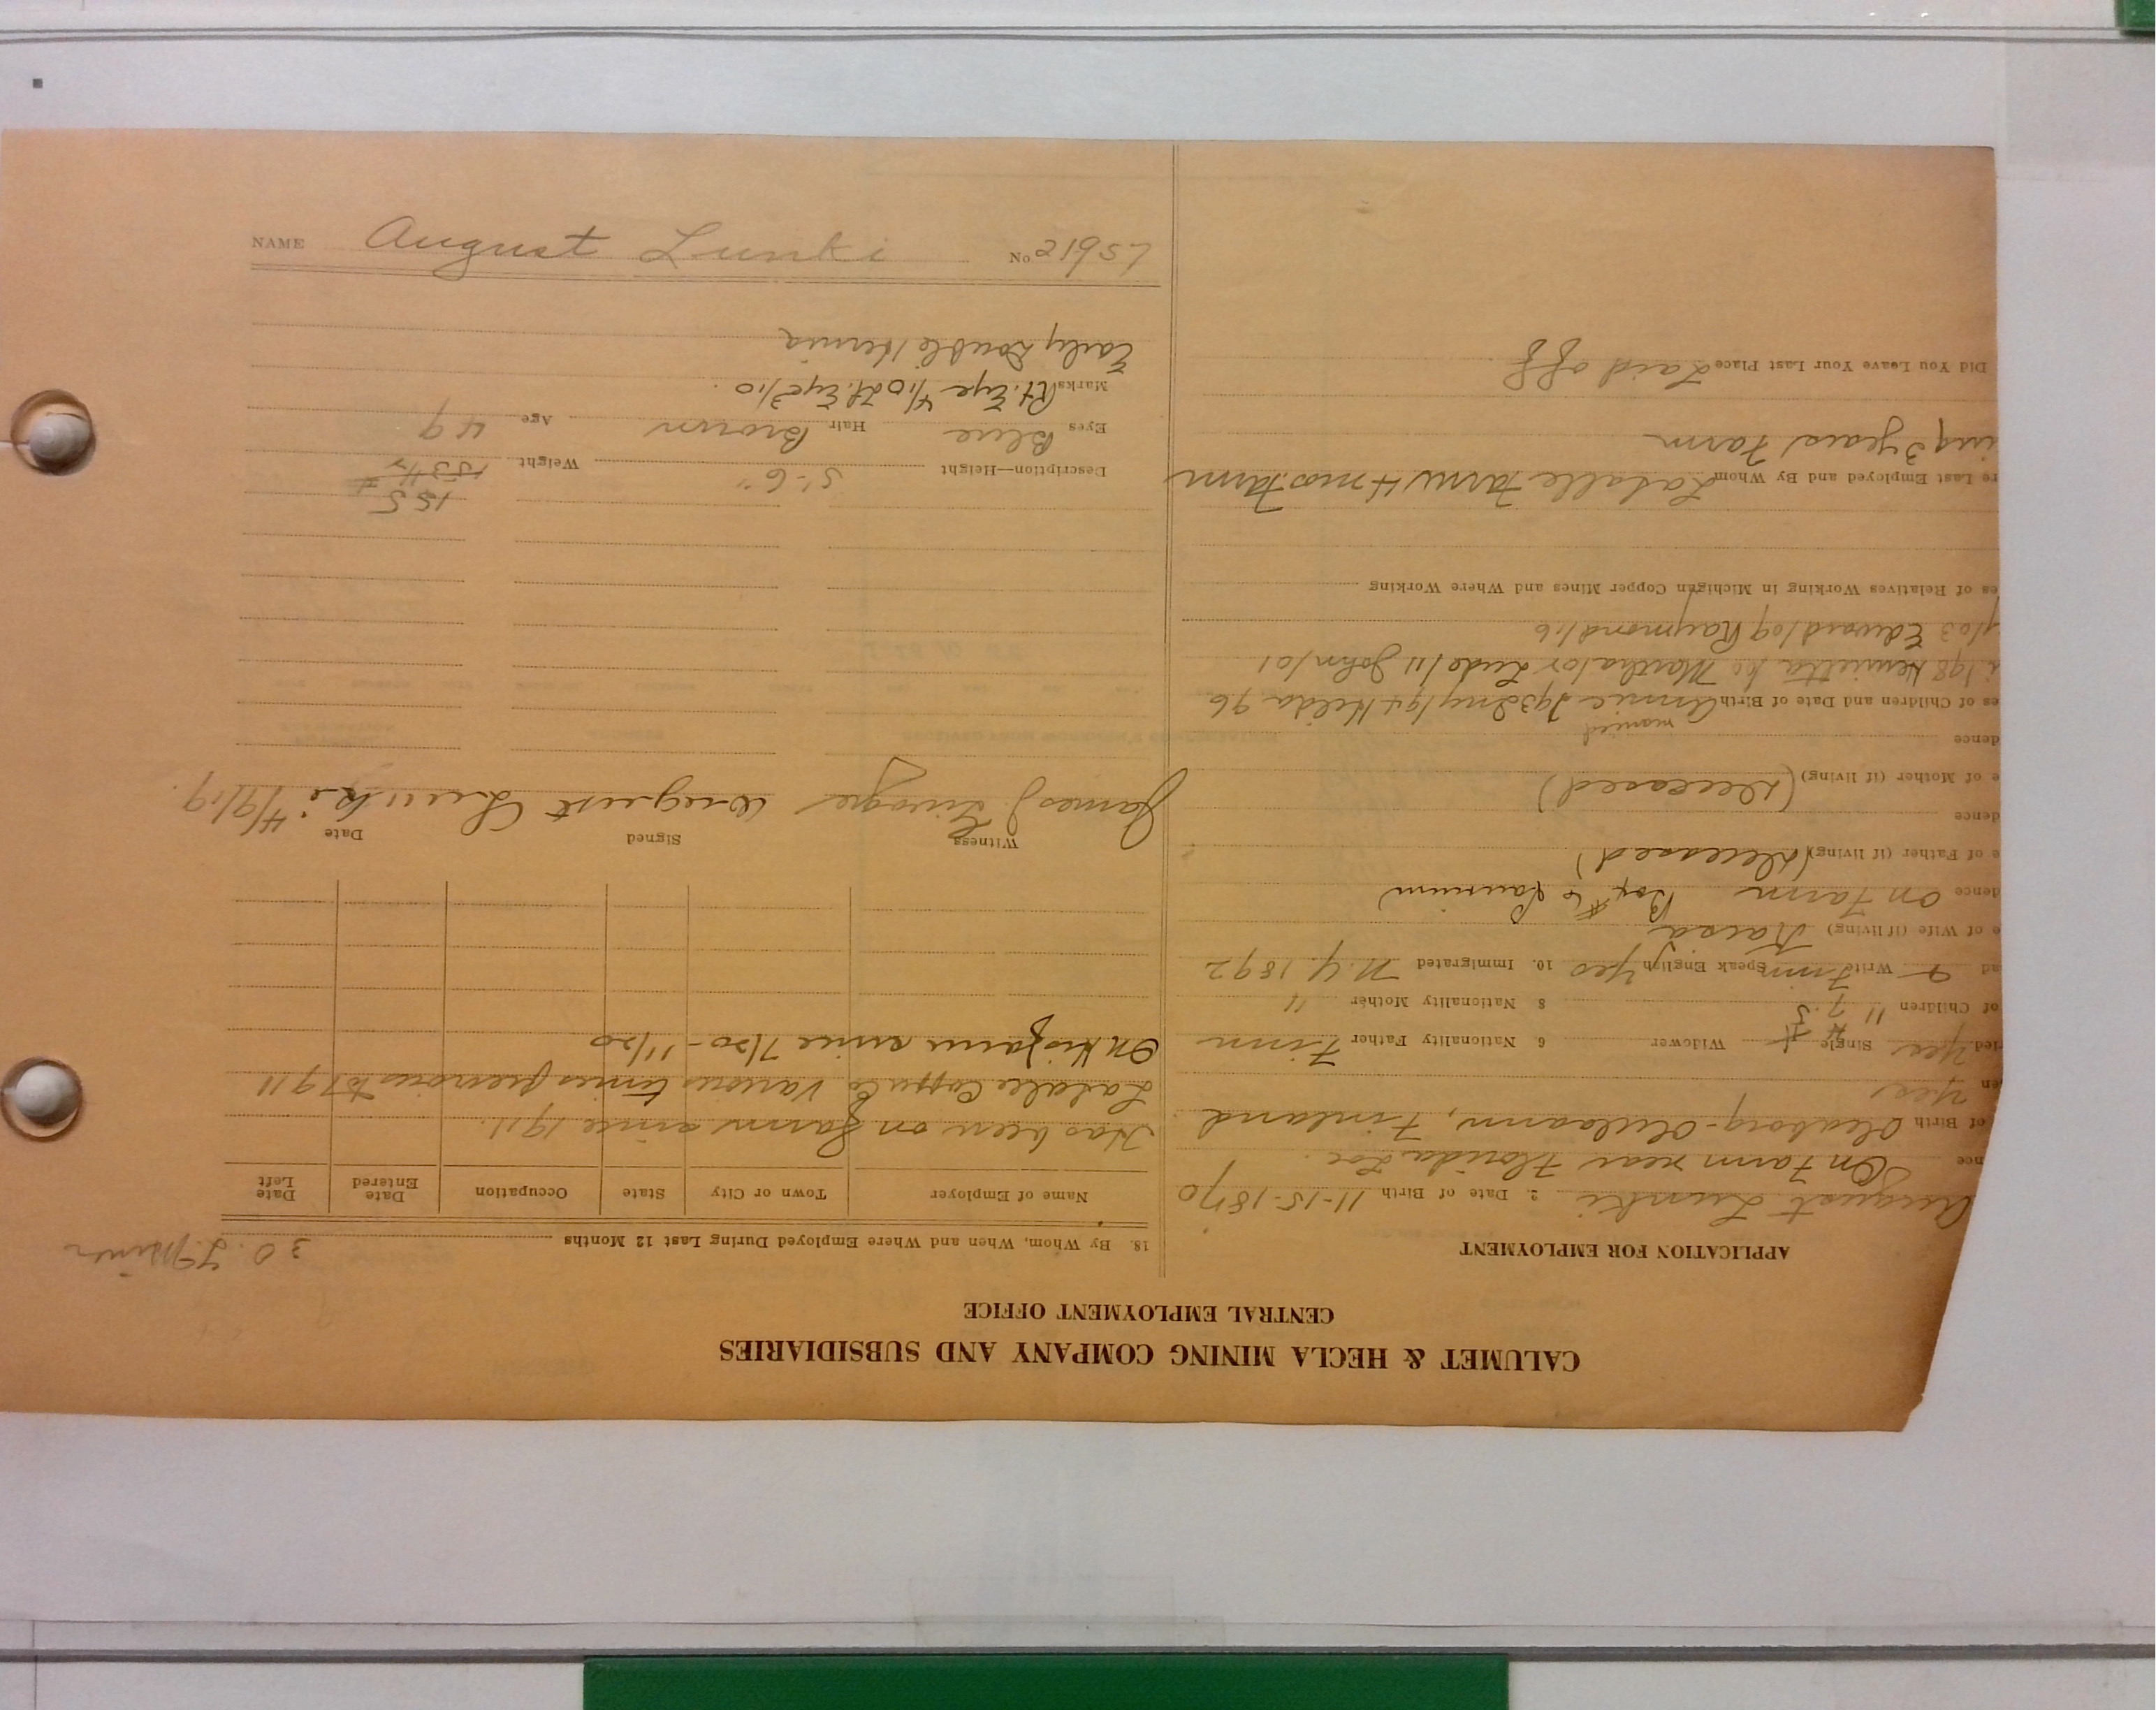 CALUMET & HECLA MINING COMPANY AND SUBSIDIARIES
CENTRAL EMPLOYMENT OFFICE
APPLICATION FOR EMPLOYMENT
August Lunki 2. Date of Birth 11-15-1870
nce On Farm near Florida Loc.
of Birth Finland
en Yes
ried Yes Single Widower 6. Nationality Father Finn
of Children 11 7 8 Nationality Mother "
ad Write Finn Speak English Yes 10. Immigrated N.Y. 1892
e of Wife (if living) Kaisa
dence On Farm Box #6 Laurium
e of Father (if living) (Deceased)
dence
e of Mother (if living) (Deceased)
dence
married
es of Children and Date of Birth Annie Hilda 96
198 Henrietta Martha John/01
1/03 Edward/09 Raymond/16
es of Relatives Working in Michigan Copper Mines and Where Working
re Last Employed and By Whom Lasalle Farm 4 mos. Farm
ing 3 years Farm
Did You Leave Your Last Place Laid off
30.
18. By Whom, When and Where Employed During Last 12 Months
Name of Employer Town or City State Occupation Date Entered Date Left
Has been on farm since 1911.
Lasalle Copper Co Various times previous to 1911
On his farm since 7/20 - 11/20
Witness Signed Date
James J. August Lunki 4/9/19.
155
Description—Height 5'-6" Weight
Eyes Blue Hair Brown Age 49
Marks Rt. Eye 4/10 Lt. Eye 3/10.
Early Double Hernia
NAME August Lunki No. 21957